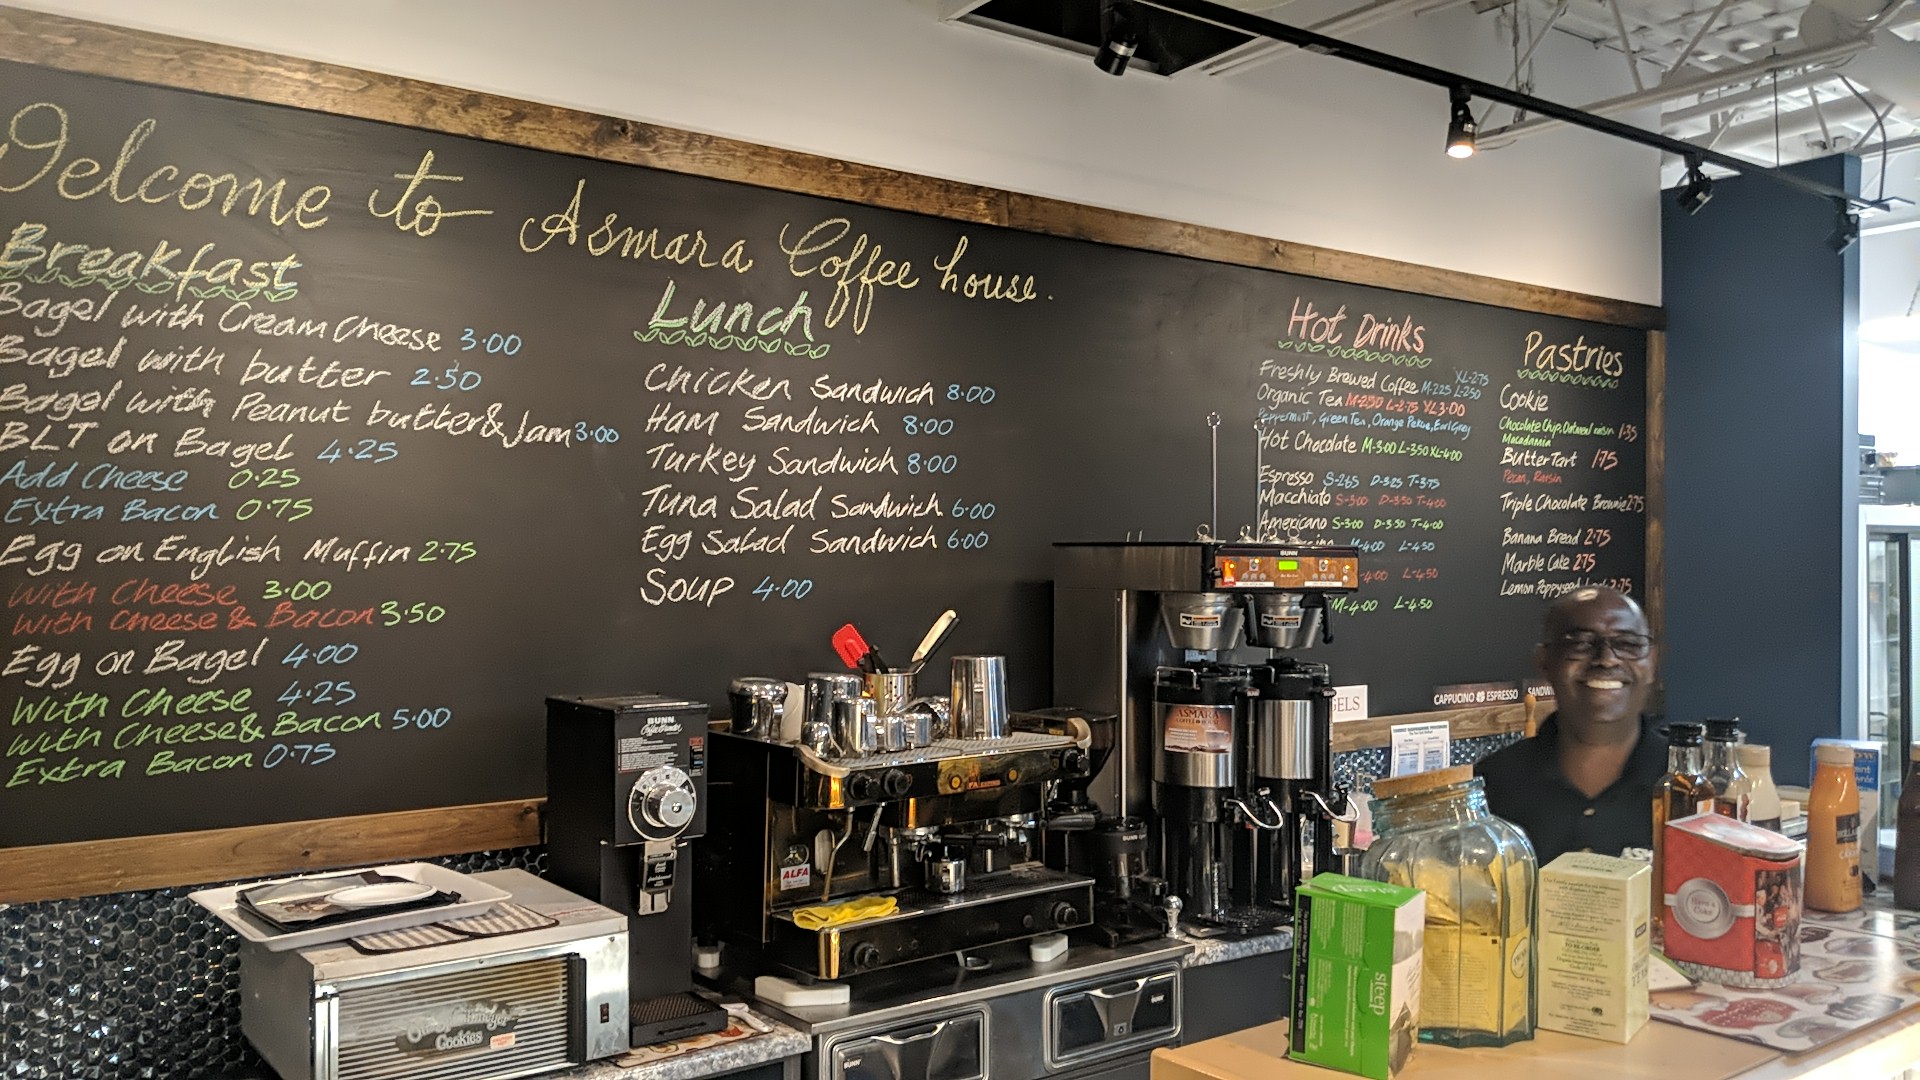 Welcome to Asmara Coffee house.
Breakfast
Bagel with Cream Cheese 3.00
Bagel with butter 2.50
Bagel with Peanut butter & Jam 3.00
BLT on Bagel 4.25
Add Cheese 0.25
Extra Bacon 0.75
Egg on English Muffin 2.75
With Cheese 3.00
With Cheese & Bacon 3.50
Egg on Bagel 4.00
With Cheese 4.25
With Cheese & Bacon 5.00
Extra Bacon 0.75
Lunch
Chicken Sandwich 8.00
Ham Sandwich 8.00
Turkey Sandwich 8.00
Tuna Salad Sandwich 6.00
Egg Salad Sandwich 6.00
Soup 4.00
Hot Drinks
XL-2.75
Freshly Brewed Coffee M-2.25 L-2.50
Organic Tea M-2.50 L-2.75 XL 3.00
Peppermint, Green Tea, Orange Pekoe, Earl Grey
Hot Chocolate M-3.00 L-3.50 XL-4.00
Espresso S-2.65 D-3.25 T-3.75
Macchiato S-3.00 D-3.50 T-4.00
Americano S-3.00 D-3.50 T-4.00
M-4.00 L-4.50
4.00 L-4.50
M-4.00 L-4.50
Pastries
Cookie
Chocolate Chip, Oatmeal raisin 1.35
Macadamia
Butter Tart 1.75
Pecan, Raisin
Triple Chocolate Brownie 2.75
Banana Bread 2.75
Marble Cake 2.75
Lemon Poppyseed 2.75
BUNN
BUNN
ASMARA
GELS
CAPPUCINO ESPRESSO
SANDW
ALFA
Cookies
BUNN
BUNN
steep